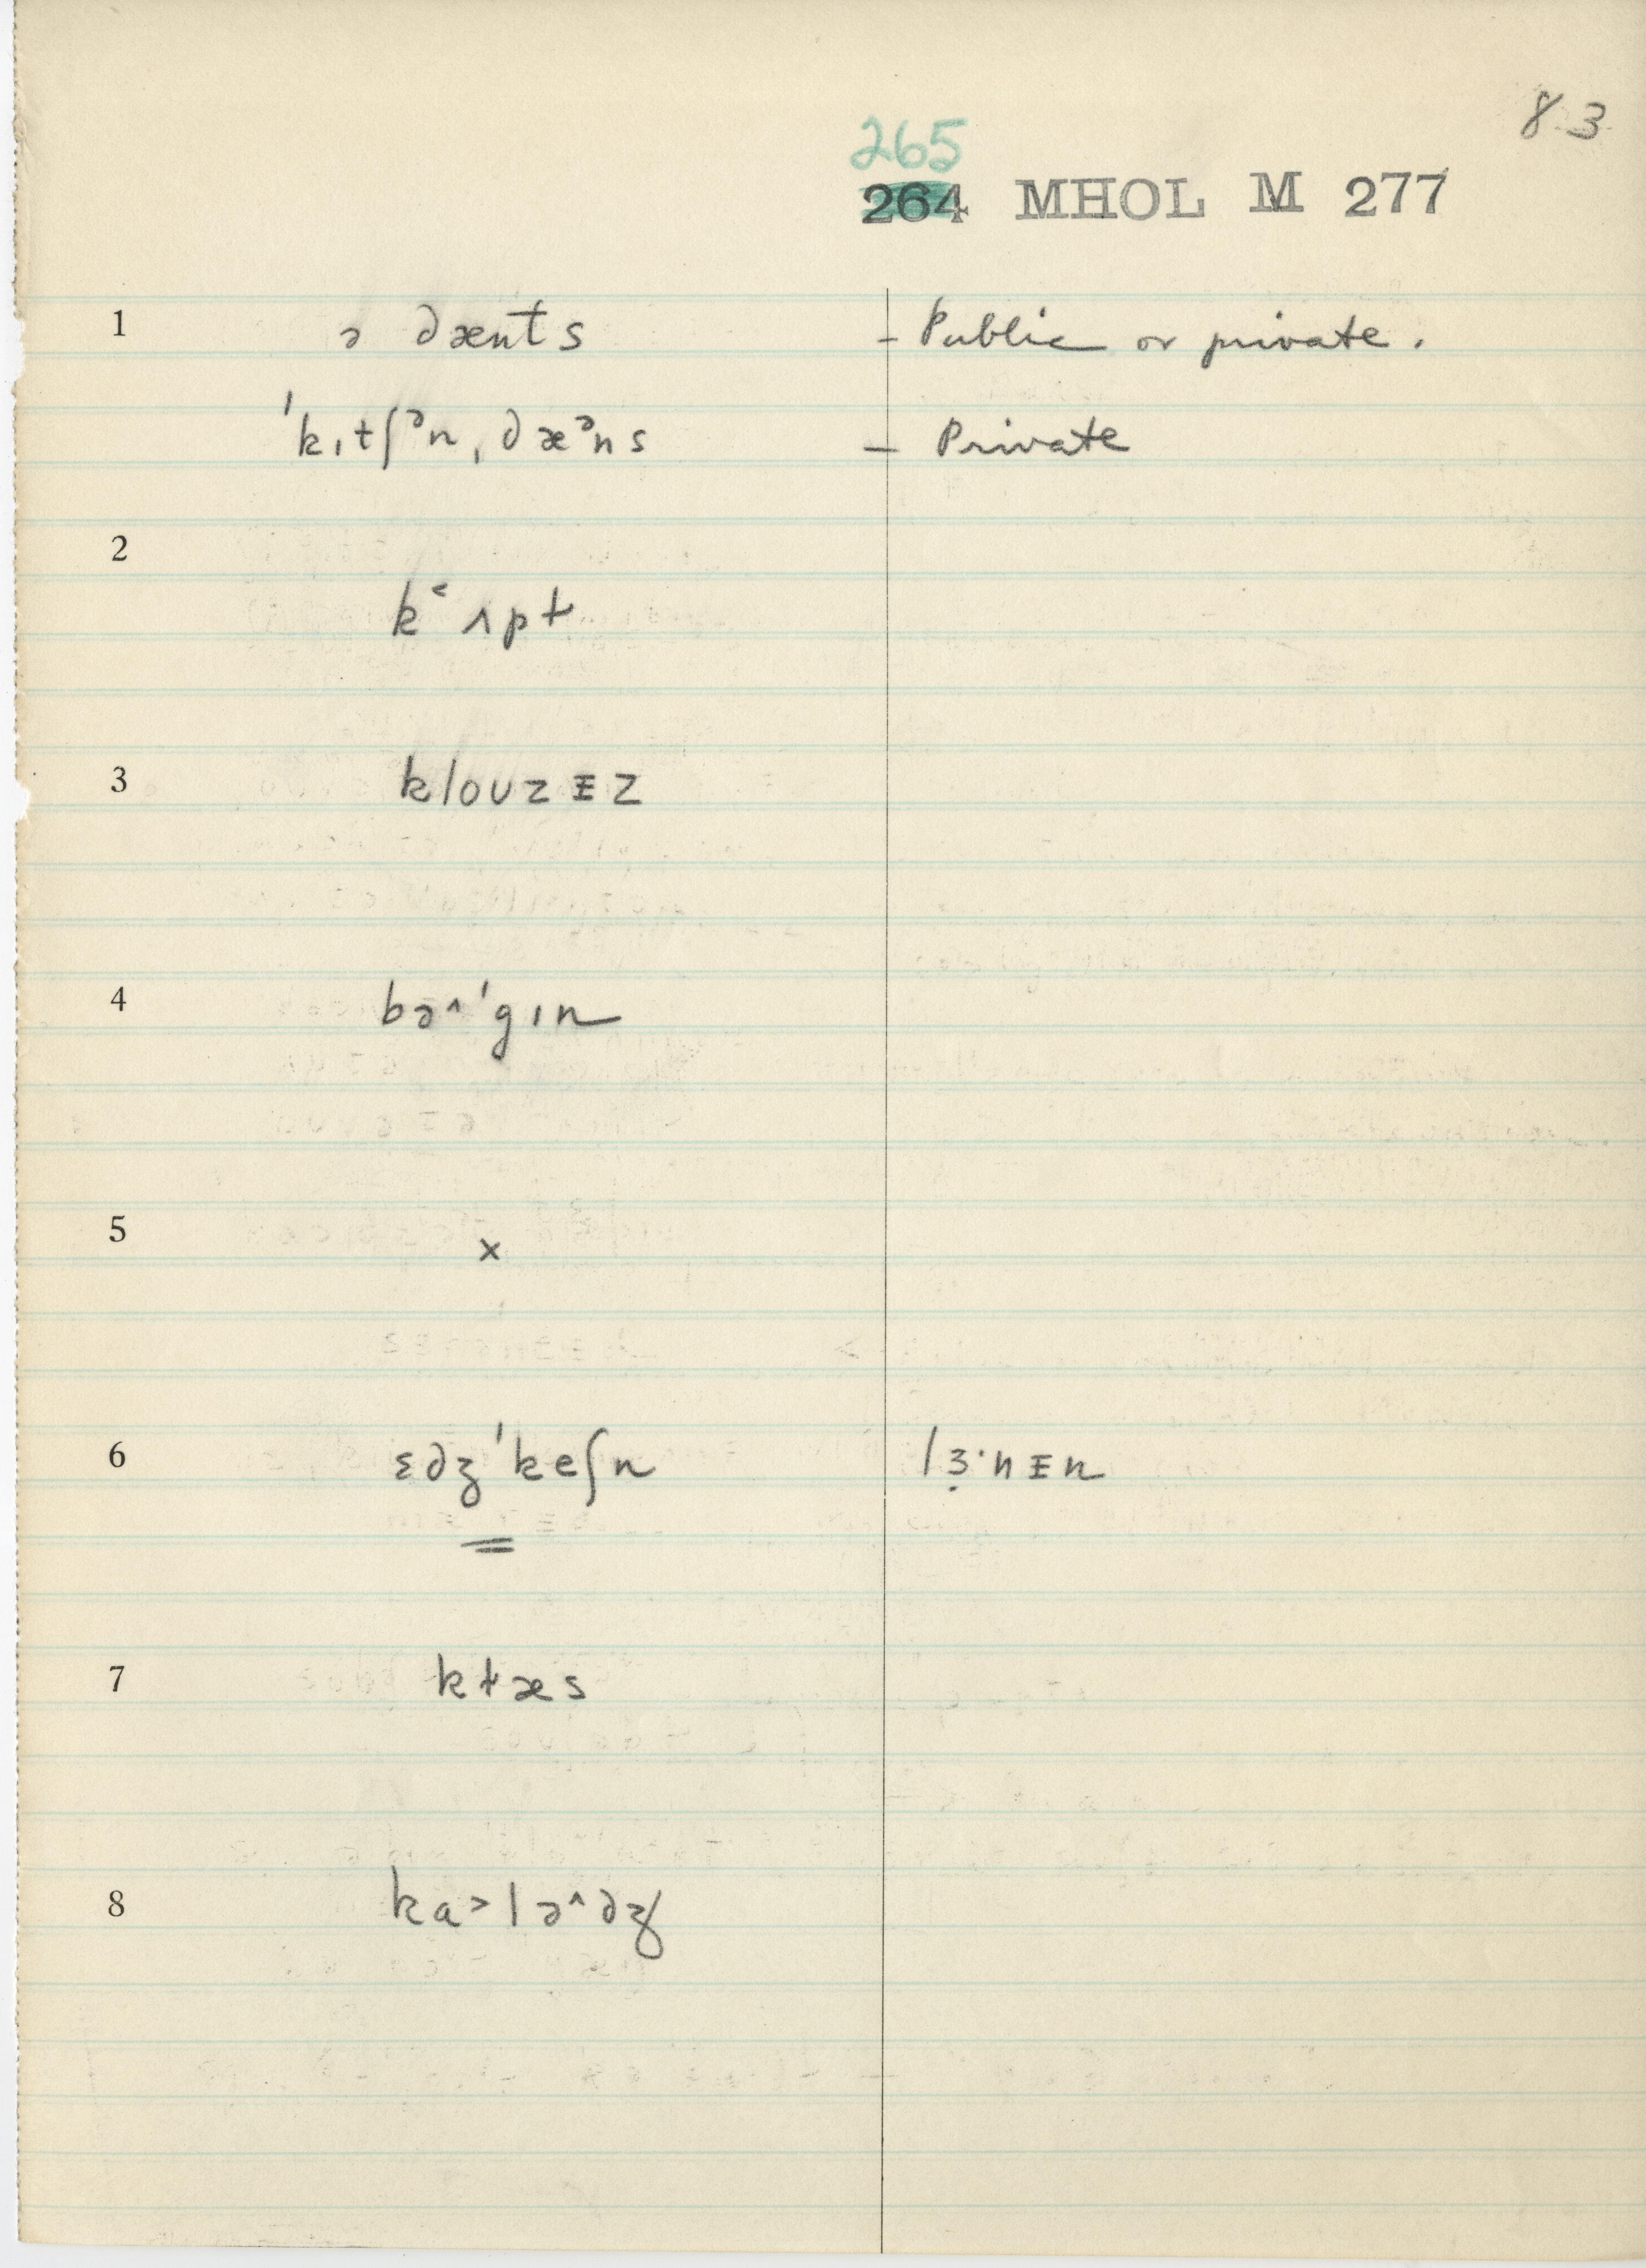 83
265
264 MHOL M 277
1 ə dæntˢ – Public or private.
ˈkɪtʃᵊn ˌdæᵊns – Private
2
k˂ʌpt
3 klouzᵻz
4 bə^ˈgɪn
5 ×
6 ɛdʒˈkeʃn lɜ̣·nᵻn
7 kɫæs
8 ka˃lə^dʒ